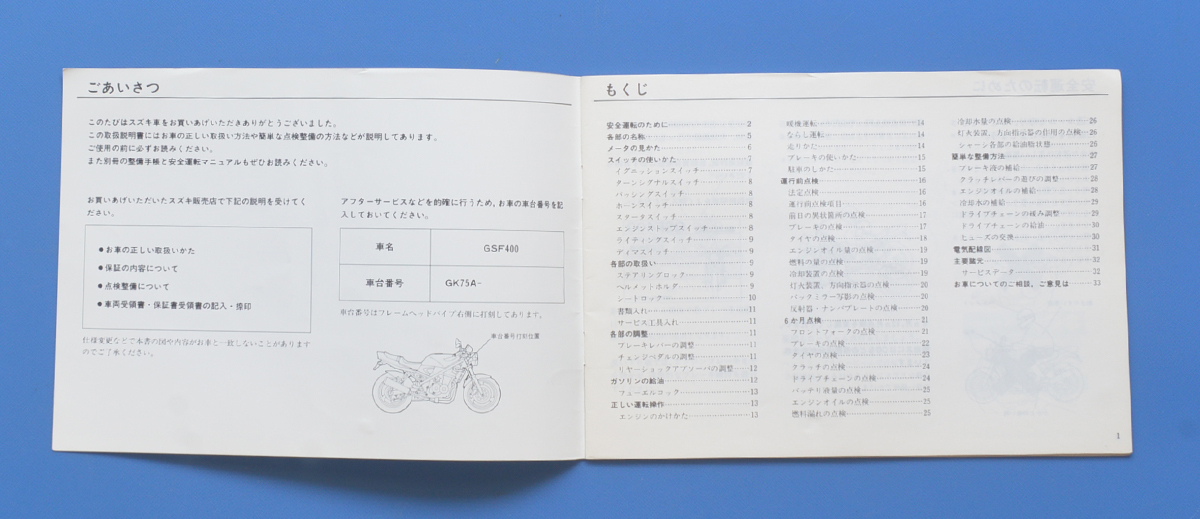 ごあいさつ
このたびはスズキ車をお買いあげいただきありがとうございました。
この取扱説明書にはお車の正しい取扱い方法や簡単な点検整備の方法などが説明してあります。
ご使用の前に必ずお読みください。
また別冊の整備手帳と安全運転マニュアルもぜひお読みください。
お買いあげいただいたスズキ販売店で下記の説明を受けてく
ださい。
●お車の正しい取扱いかた
●保証の内容について
●点検整備について
●車両受領書・保証書受領書の記入・捺印
仕様変更などで本書の図や内容がお車と一致しないことがあります
のでご了承ください。
アフターサービスなどを的確に行うため、お車の車台番号を記
入しておいてください。
車名 GSF400
車台番号 GK75A-
車台番号はフレームヘッドパイプ右側に打刻してあります。
車台番号打刻位置
もくじ
安全運転のために 2
各部の名称 5
メータの見かた 6
スイッチの使いかた 7
イグニッションスイッチ 7
ターンシグナルスイッチ 8
パッシングスイッチ 8
ホーンスイッチ 8
スタータスイッチ 8
エンジンストップスイッチ 8
ライティングスイッチ 9
ディマスイッチ 9
各部の取扱い 9
ステアリングロック 9
ヘルメットホルダ 9
シートロック 10
書類入れ 11
サービス工具入れ 11
各部の調整 11
ブレーキレバーの調整 11
チェンジペダルの調整 11
リヤーショックアブソーバの調整 12
ガソリンの給油 12
フューエルコック 13
正しい運転操作 13
エンジンのかけかた 13
暖機運転 14
ならし運転 14
走りかた 14
ブレーキの使いかた 15
駐車のしかた 15
運行前点検 16
法定点検 16
運行前点検項目 16
前日の異状箇所の点検 17
ブレーキの点検 17
タイヤの点検 18
エンジンオイル量の点検 19
燃料の量の点検 19
冷却装置の点検 19
灯火装置、方向指示器の点検 20
バックミラー写影の点検 20
反射器・ナンバプレートの点検 20
6か月点検 21
フロントフォークの点検 21
ブレーキの点検 22
タイヤの点検 23
クラッチの点検 24
ドライブチェーンの点検 24
バッテリ液量の点検 25
エンジンオイルの点検 25
燃料漏れの点検 25
冷却水量の点検 26
灯火装置、方向指示器の作用の点検 26
シャーシ各部の給油脂状態 26
簡単な整備方法 27
ブレーキ液の補給 27
クラッチレバーの遊びの調整 28
エンジンオイルの補給 28
冷却水の補給 29
ドライブチェーンの緩み調整 29
ドライブチェーンの給油 30
ヒューズの交換 30
電気配線図 31
主要諸元 32
サービスデータ 32
お車についてのご相談、ご意見は 33
1